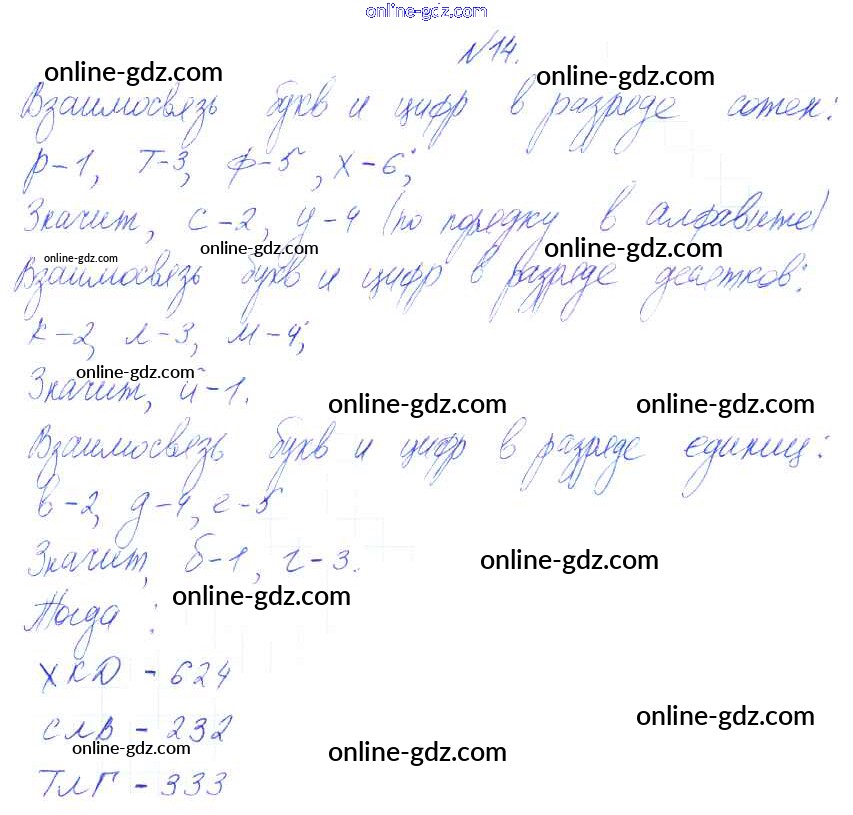 online-gdz.com
№14.
online-gdz.com
online-gdz.com
Взаимосвязь букв и цифр в разряде сотен:
р-1, т-3, ф-5, х-6;
Значит, с-2, у-4 (по порядку в алфавите)
online-gdz.com
online-gdz.com
online-gdz.com
Взаимосвязь букв и цифр в разряде десятков:
к-2, л-3, м-4;
online-gdz.com
Значит, й-1.
online-gdz.com
online-gdz.com
Взаимосвязь букв и цифр в разряде единиц:
в-2, д-4, е-5
Значит, б-1, г-3.
online-gdz.com
online-gdz.com
Тогда:
ХКД - 624
online-gdz.com
СЛВ - 232
online-gdz.com
online-gdz.com
ТЛГ - 333
online-gdz.com